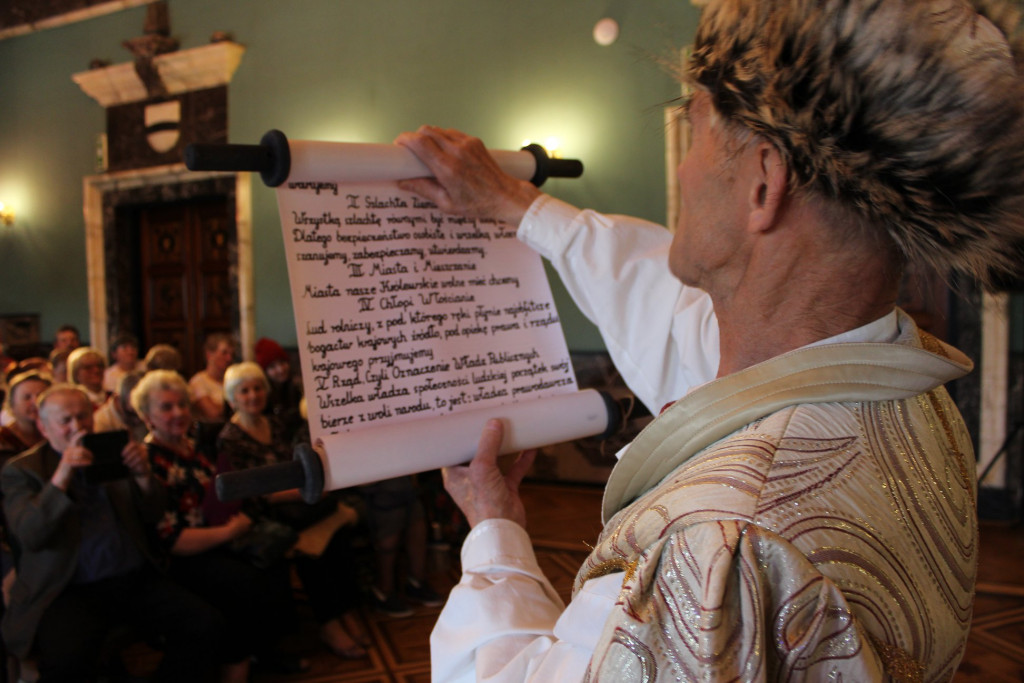 warujemy
II Szlachta Ziem
Wszystką szlachtę równymi być między
Dlatego bezpieczeństwo osobiste i wszelką własn
szanujemy, zabezpieczamy, utwierdzamy.
III Miasta i Mieszczanie
Miasta nasze Królewskie wolne mieć chcemy
IV Chłopi Włościanie
Lud rolniczy, z pod którego ręki płynie najobfitsze
bogactw krajowych źródło, pod opiekę prawa i rządu
krajowego przyjmujemy
V Rząd, Czyli Oznaczenie Władz Publicznych
Wszelka władza społeczności ludzkiej początek swój
bierze z woli narodu, to jest: władza prawodawcza